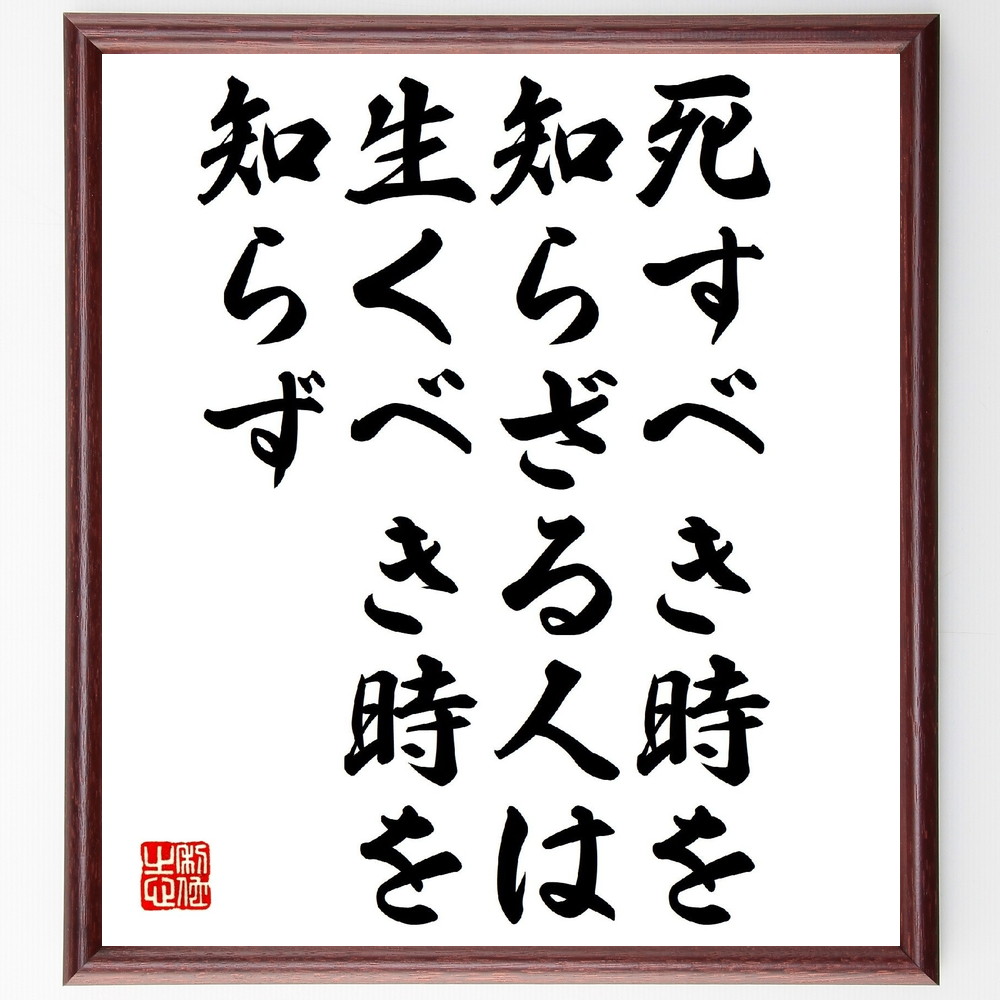 死すべき時を
知らざる人は
生くべき時を
知らず